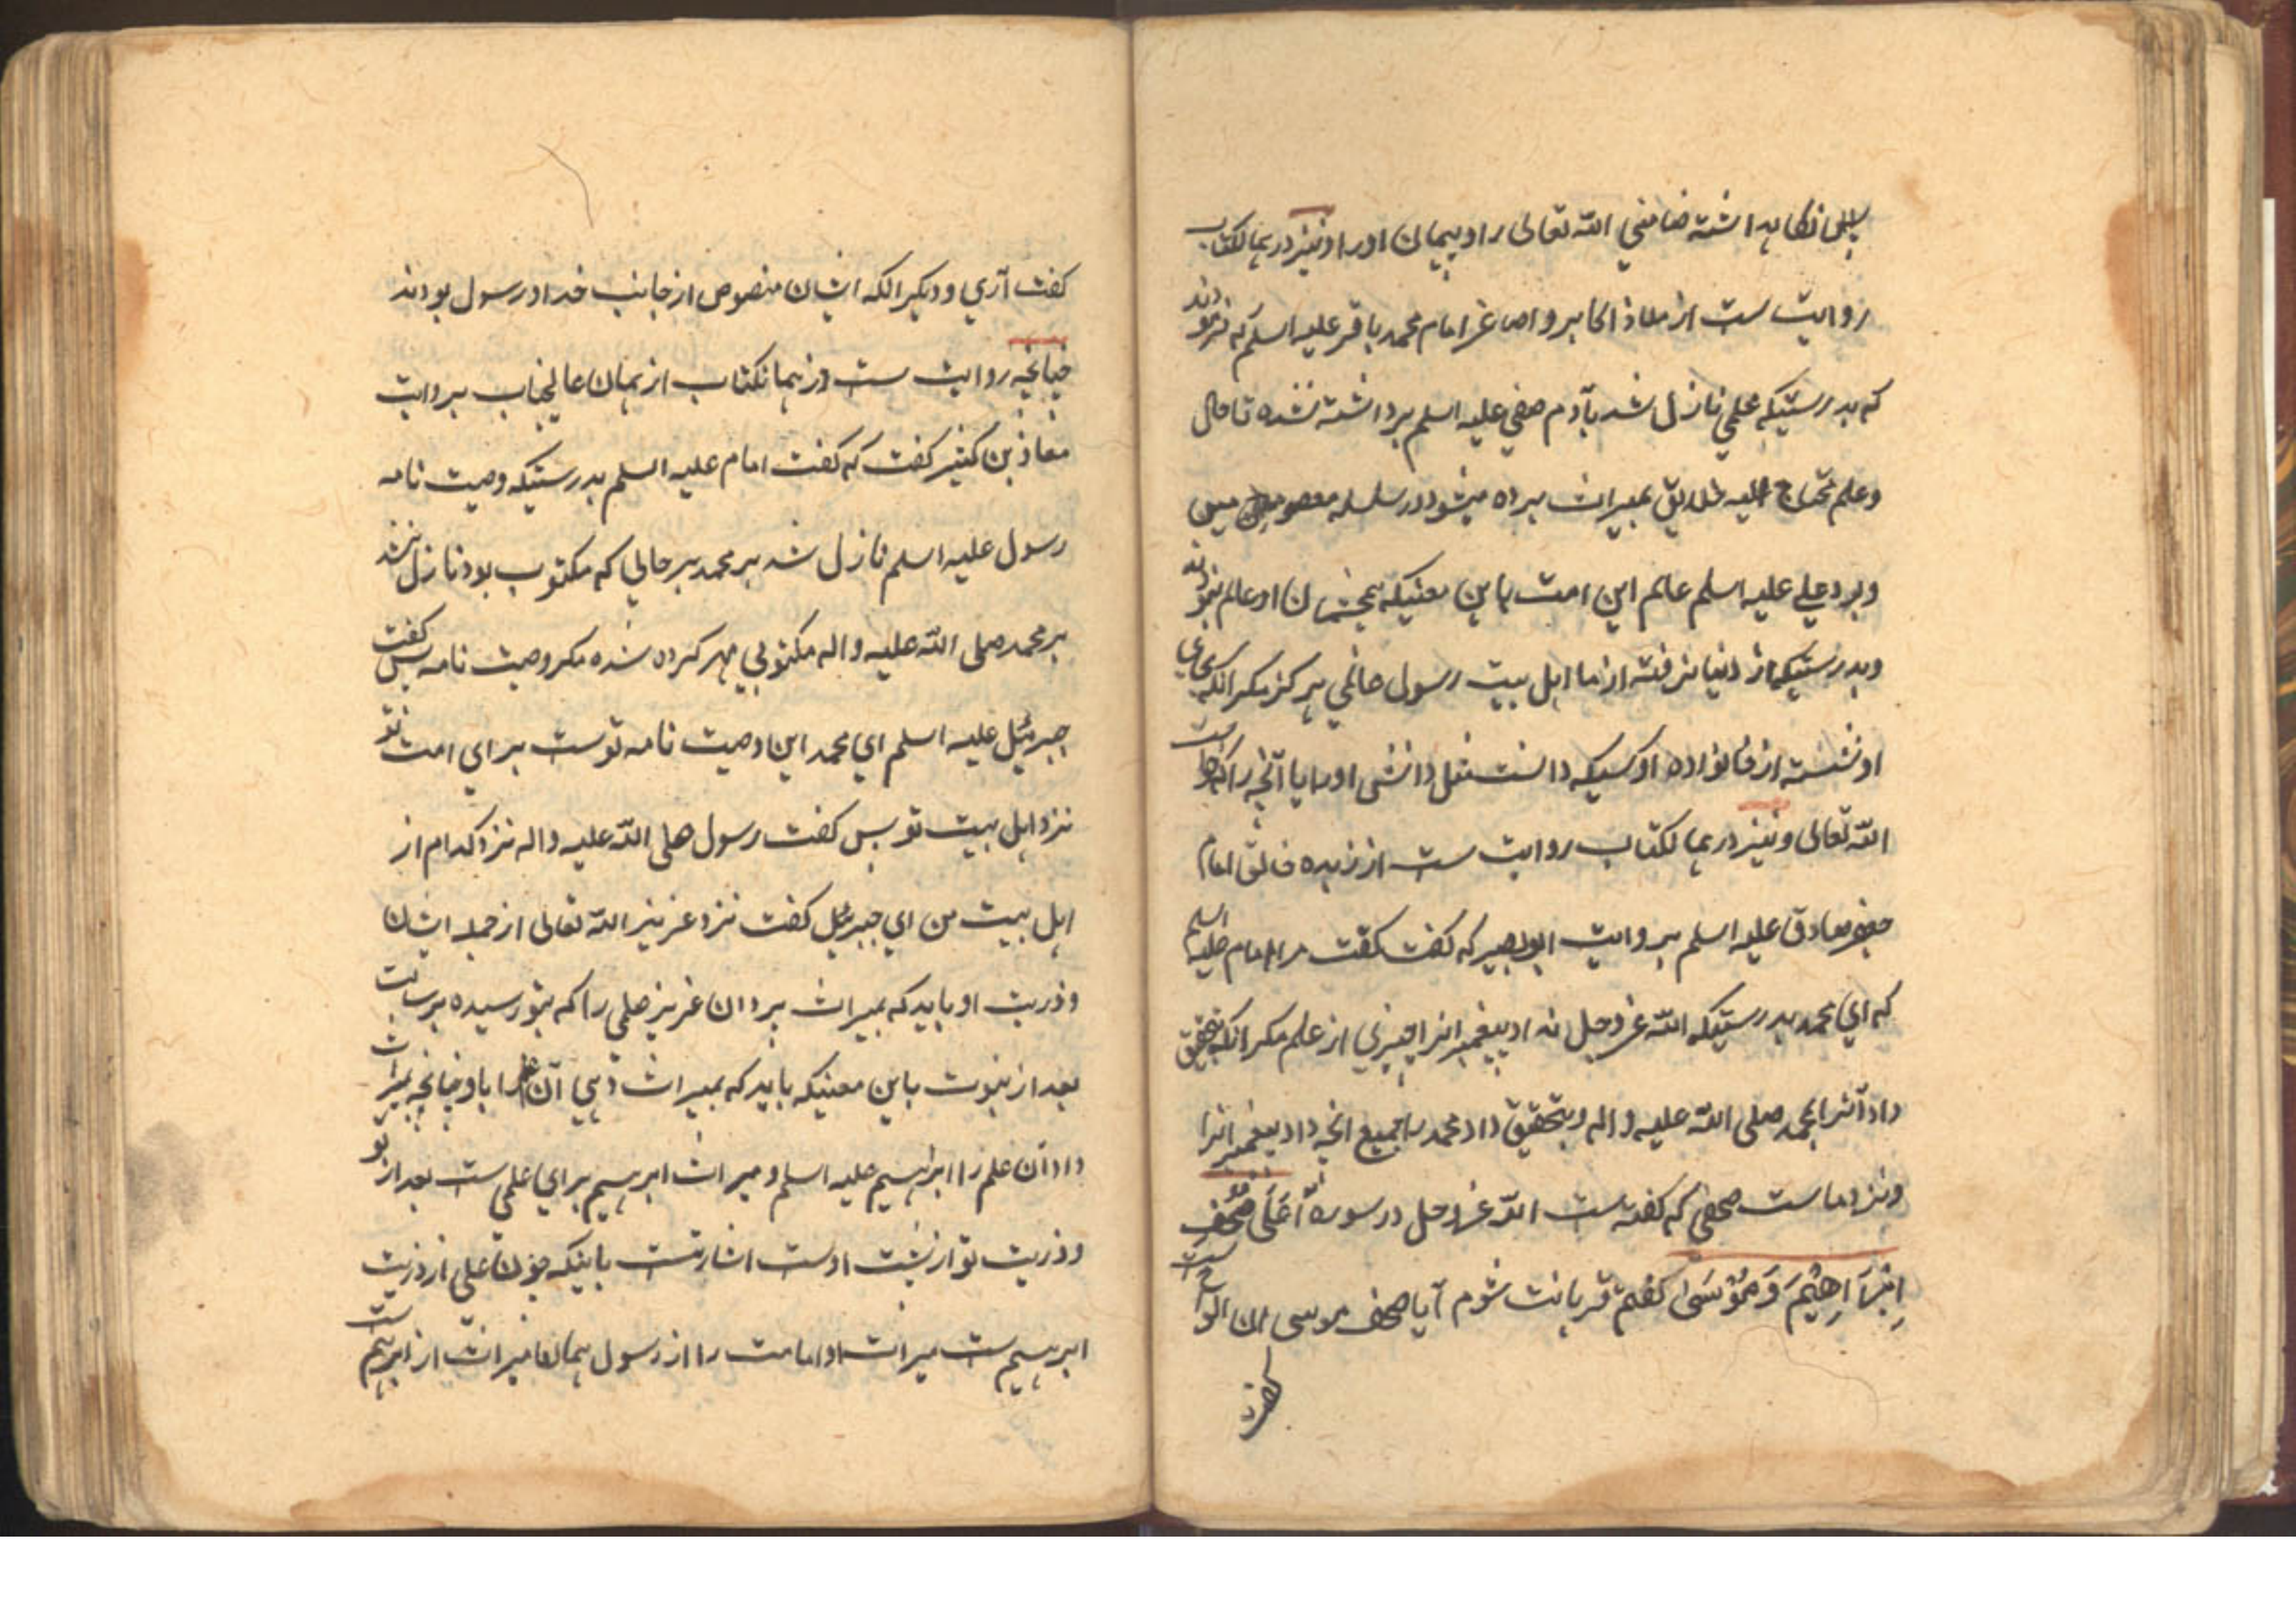 نگاه داشته ضامنی الله تعالی را و پیمان او را و نیز در همانکتاب
روایت ست از ملاذ اکابر و اصاغر امام محمد باقر علیه اسلم که فرمودند
که بدرستیکه علمی نازل شد بآدم صفی علیه اسلم برداشته نشده تا حال
و علم محتاج الیه خلایق بمیراث برده میشود در سلسله معصومین
و بود علی علیه اسلم عالم این امت باین معنیکه همچشمان او عالم نبودند
و بدرستیکه از دنیا نرفته از ما اهل بیت رسول عالمی هرگز مکر انکه بجای
او نشسته از خانواده او کسیکه دانست مثل دانش او را یا آنچه را که خواست
الله تعالی و نیز در همانکتاب روایت ست از زبده خلایق امام
جعفر صادق علیه اسلم بروایت ابو بصیر که گفت گفت مرا امام علیه اسلم
که ای محمد بدرستیکه الله عز و جل نداد پیغمبرانرا چیزی از علم مکر انکه بتحقیق
داد آنرا بمحمد صلی الله علیه و اله و بتحقیق داد محمد را جمیع انچه داد پیغمبرانرا
و نزد ماست صحفی که گفته ست الله عز و جل در سوره اعلی صُحُفِ
اِبْرَاهِیْمَ وَ مُوْسَیٰ گفتم قربانت شوم آیا صحف موسی ان الواح ست
گفت آری و دیگر انکه ایشان منصوص از جانب خدا و رسول بودند
چنانچه روایت ست در همانکتاب از همان عالیجناب بروایت
معاذ بن کثیر گفت که گفت امام علیه اسلم بدرستیکه وصیت نامه
رسول علیه اسلم نازل شد بر محمد بر حالی که مکتوب بود نازل نشد
بر محمد صلی الله علیه و اله مکتوبی مهر کرده شده مکر وصیت نامه پس گفت
جبرئیل علیه اسلم ای محمد این وصیت نامه توست برای امت تو
نزد اهل بیت تو پس گفت رسول صلی الله علیه و اله نزد کدام از
اهل بیت من ای جبرئیل گفت نزد عزیز الله تعالی از جمله ایشان
و ذریت او باید که بمیراث برد ان عزیز علمی را که بتو رسیده برسالت
بعد از نبوت باین معنیکه باید که بمیراث دهی آن علم را باو چنانچه بمیراث
داد آن علم را ابراهیم علیه اسلم و میراث ابرهیم برای علی ست بعد از تو
و ذریت تو از پشت اوست اشارتست باینکه چون علی از ذریت
ابرهیم ست میراث او امامت را از رسول همانا میراث از ابرهیم ست